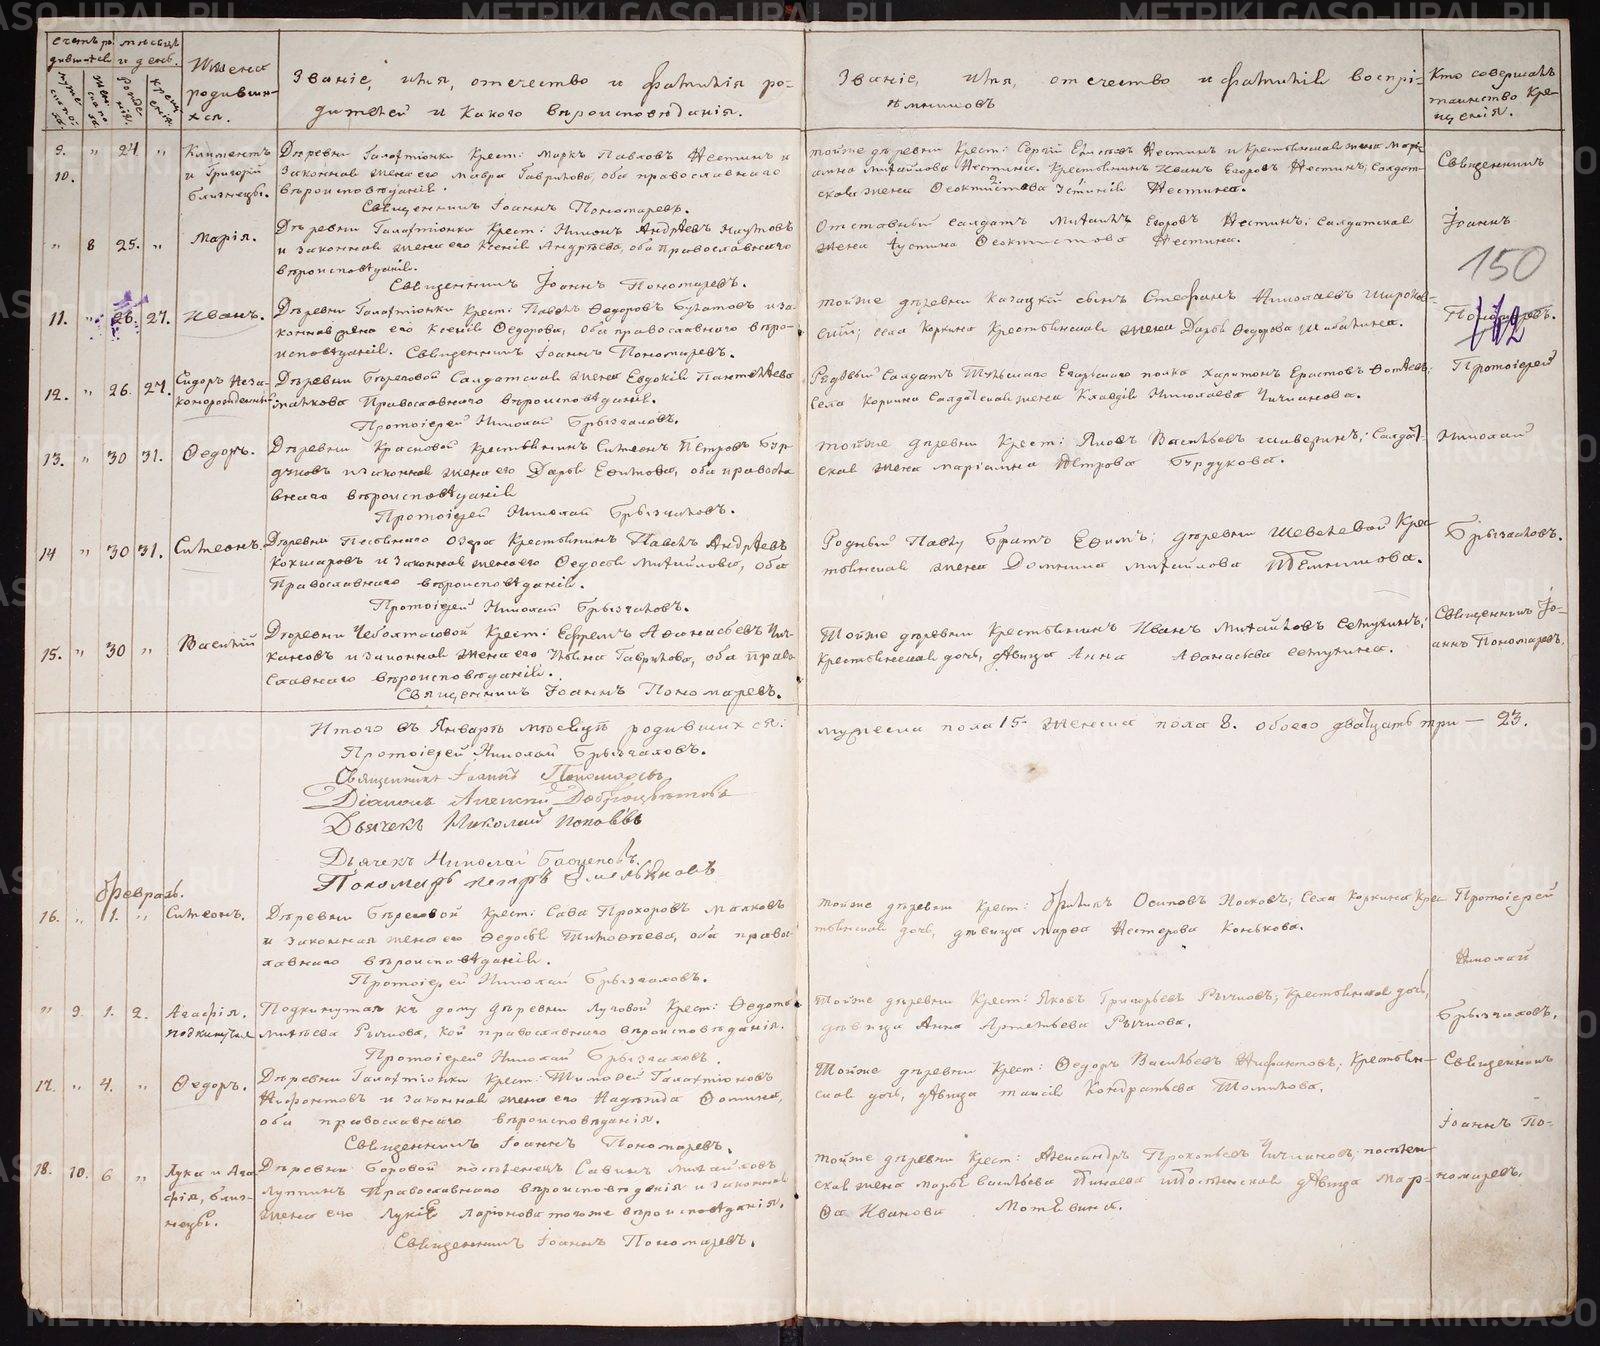 Счетъ ро-
дившихся
мѣсяцъ
и день.
Имена
родивши-
хся.
Званіе, имя, отечество и фамилія ро-
дителей и какого вѣроисповѣданія.
Званіе, имя, отечество и фамилія воспрі-
емниковъ
Кто совершалъ
таинство Кре-
щенія.
9. " 24 "
10.
Климентъ
и Григорій
близнецы.
Деревни Галактіонки Крест: Маркъ Павловъ Нестинъ и
законная жена его Мавра Гаврилова, оба православнаго
вѣроисповѣданія.
Священникъ Іоаннъ Пономаревъ.
тойже деревни Крест: Сергій
Нестина. Крестьянинъ Иванъ Егоровъ Нестинъ; солдат-
ская жена Нестина.
Священникъ
" 8 25. "
Марія.
Деревни Галактіонки Крест: Андрѣевъ Наумовъ
и законная жена его Ксенія Андрѣева, оба православнаго
вѣроисповѣданія.
Священникъ Іоаннъ Пономаревъ.
Отставный солдатъ Михаилъ Егоровъ Нестинъ; солдатская
жена Устинія Ѳеоктистова Нестина.
Іоаннъ
150
11. " 26. 27. Иванъ.
Деревни Галактіонки Крест: Павелъ Ѳедоровъ Булатовъ и за-
конная жена его Ксенія Ѳедорова, оба православнаго вѣро-
исповѣданія. Священникъ Іоаннъ Пономаревъ.
тойже деревни Казацкій сынъ Стефанъ Николаевъ Широков-
скій; села Коркина Крестьянская жена Дарья Ѳедорова
Пономаревъ.
12. " 26. 27.
Сидоръ Неза-
коннорожденный.
Деревни Береговой Солдатская жена Евдокія Пантелѣева
Малкова Православнаго вѣроисповѣданія.
Протоіерей Николай Брызгаловъ.
солдатъ Тульскаго Егерьскаго полка Харитонъ Ерастовъ
Села Коркина Солдатская жена Клавдія Николаева Чичканова.
Протоіерей
13. " 30 31. Ѳедоръ.
Деревни Красновой Крестьянинъ Симеонъ Петровъ Бур-
дуковъ и законная жена его Дарья Ефимова, оба правосла-
внаго вѣроисповѣданія
Протоіерей Николай Брызгаловъ.
тойже деревни Крест: Яковъ Васильевъ; Солдат-
ская жена Маріамна Петрова Бурдукова.
Николай
14 " 30 31. Симеонъ.
Деревни Песьянаго Озера Крестьянинъ Павелъ Андрѣевъ
Кокшаровъ и законная жена его Ѳедосья Михайлова, оба
Православнаго вѣроисповѣданія.
Протоіерей Николай Брызгаловъ.
Родный Павлу братъ Ефимъ; деревни Шевелевой Кре-
стьянская жена Домника Михайлова
Брызгаловъ.
15. " 30 " Василій
Деревни Чеболтасовой Крест: Ефремъ Аѳанасьевъ
и законная жена его Гаврилова, оба Право-
славнаго вѣроисповѣданія.
Священникъ Іоаннъ Пономаревъ.
Тойже деревни Крестьянинъ Иванъ Михайловъ Сетунинъ;
Крестьянская дочь, дѣвица Анна Аѳанасьева Сетунина.
Священникъ Іо-
аннъ Пономаревъ.
Итого въ Январѣ мѣсяцѣ родившихся:
мужеска пола 15 женска пола 8. обоего двадцать три — 23.
Протоіерей Николай Брызгаловъ.
Священникъ Іоаннъ Пономаревъ
Діаконъ Алексій Доброцвѣтовъ
Дьячекъ Николай Поповъ
Дьячекъ Николай
Пономарь Петръ Омельяновъ
Февраль.
16. " 1. " Симеонъ.
Деревни Береговой Крест: Сава Прохоровъ Малковъ
и законная жена его Ѳедосья Тимоѳеева, оба право-
славнаго вѣроисповѣданія.
Протоіерей Николай Брызгаловъ.
тойже деревни Крест: Филипъ Осиповъ Носковъ; Села Коркина Кре-
стьянская дочь, дѣвица Марѳа Нестерова Конькова.
Протоіерей
Николай
" 9. 1. 2.
Агафія.
подкинутая
Подкинутая къ дому деревни Луговой Крест: Ѳедота
Рычкова, кой православнаго вѣроисповѣданія.
Протоіерей Николай Брызгаловъ.
Тойже деревни Крест: Яковъ Григорьевъ Рычковъ; Крестьянская дочь,
дѣвица Анна Артемьева Рычкова.
Брызгаловъ.
17. " 4. " Ѳедоръ.
Деревни Галактіонки Крест: Тимоѳей Галактіоновъ
Нифонтовъ и законная жена его Надежда Фотина,
оба православнаго вѣроисповѣданія.
Священникъ Іоаннъ Пономаревъ.
Тойже деревни Крест: Ѳедоръ Васильевъ Нифонтовъ; Крестьян-
ская дочь, дѣвица Таисія Кондратьева Томилова.
Священникъ
Іоаннъ По-
18. 10. 6 "
Лука и Ага-
фія, близ-
нецы.
Деревни Боровой поселенецъ Савинъ Михайловъ
Луппинъ Православнаго вѣроисповѣданія и законная
жена его Лукія Ларіонова тогоже вѣроисповѣданія.
Священникъ Іоаннъ Пономаревъ.
тойже деревни Крест: Александръ Прокопьевъ Чичкановъ; поселен-
ская жена Марья Васильева дѣвица Мар-
ѳа Иванова
номаревъ.
METRIKI.GASO-URAL.RU